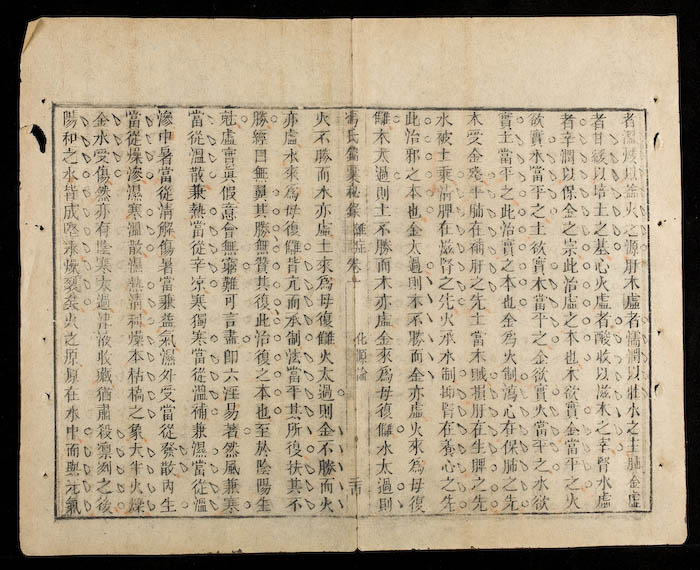 者溫煖以益火之源肝木虛者濡潤以壯水之主肺金虛
者甘緩以培土之基心火虛者酸收以滋木之宰腎水虛
者辛潤以保金之宗此治虛之本也木欲實金當平之火
欲實水當平之土欲實木當平之金欲實火當平之水欲
實土當平之此治實之本也金為火制瀉心在保肺之先
木受金殘平肺在補肝之先土當木賊損肝在生脾之先
水被土乘清脾在滋腎之先火承水制抑腎在養心之先
此治邪之本也金太過則木不勝而金亦虛火來為母復
讎木太過則土不勝而木亦虛金來為母復讎水太過則
馮氏錦囊秘錄 雜症卷 化源論
火不勝而水亦虛土來為母復讎火太過則金不勝而火
亦虛水來為母復讎皆亢而承制法當平其所復扶其不
勝經曰無翼其勝無贊其復此治復之本也至於陰陽生
尅虛實真假意會無窮難可言盡即六淫易著然風兼寒
當從溫散兼熱當從辛涼寒獨寒當從溫補兼濕當從溫
滲中暑當從清解傷暑當兼益氣濕外受當從發散內生
當從燥滲濕寒溫散濕熱清利燥本枯槁之象大半火爍
金水受傷然亦有陰寒太過津液收藏猶肅殺凜冽之後
陽和之水皆成堅冰燥裂矣火之原原在水中而與元氣